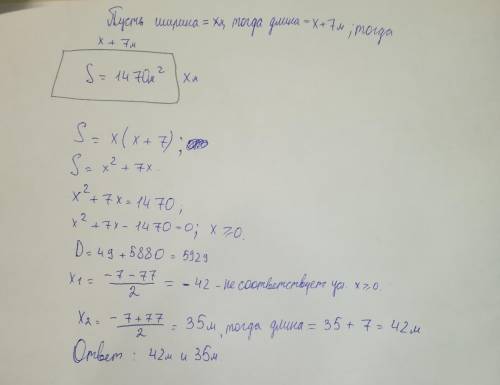 Пусть ширина = xм, тогда длина = x+7м; тогда
x + 7м
S = 1470м² xм
S = x(x+7);
S = x² + 7x.
x² + 7x = 1470;
x² + 7x - 1470 = 0; x ≥ 0.
D = 49 + 5880 = 5929
x1 = (-7-77)/2 = -42 - не соответствует ус. x ≥ 0.
x2 = (-7+77)/2 = 35м, тогда длина = 35 + 7 = 42м
Ответ: 42м и 35м